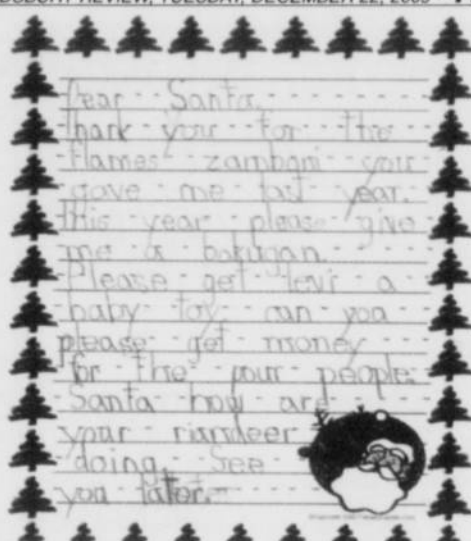 REVIEW, TUESDAY, DECEMBER 22,
Dear Santa,
thank you for the
flames zamboni you
gave me last year.
this year please give
me a bakugan.
Please get levi a
baby toy. can you
please get money
for the pour people.
Santa how are
your riandeer
doing. See
you later.